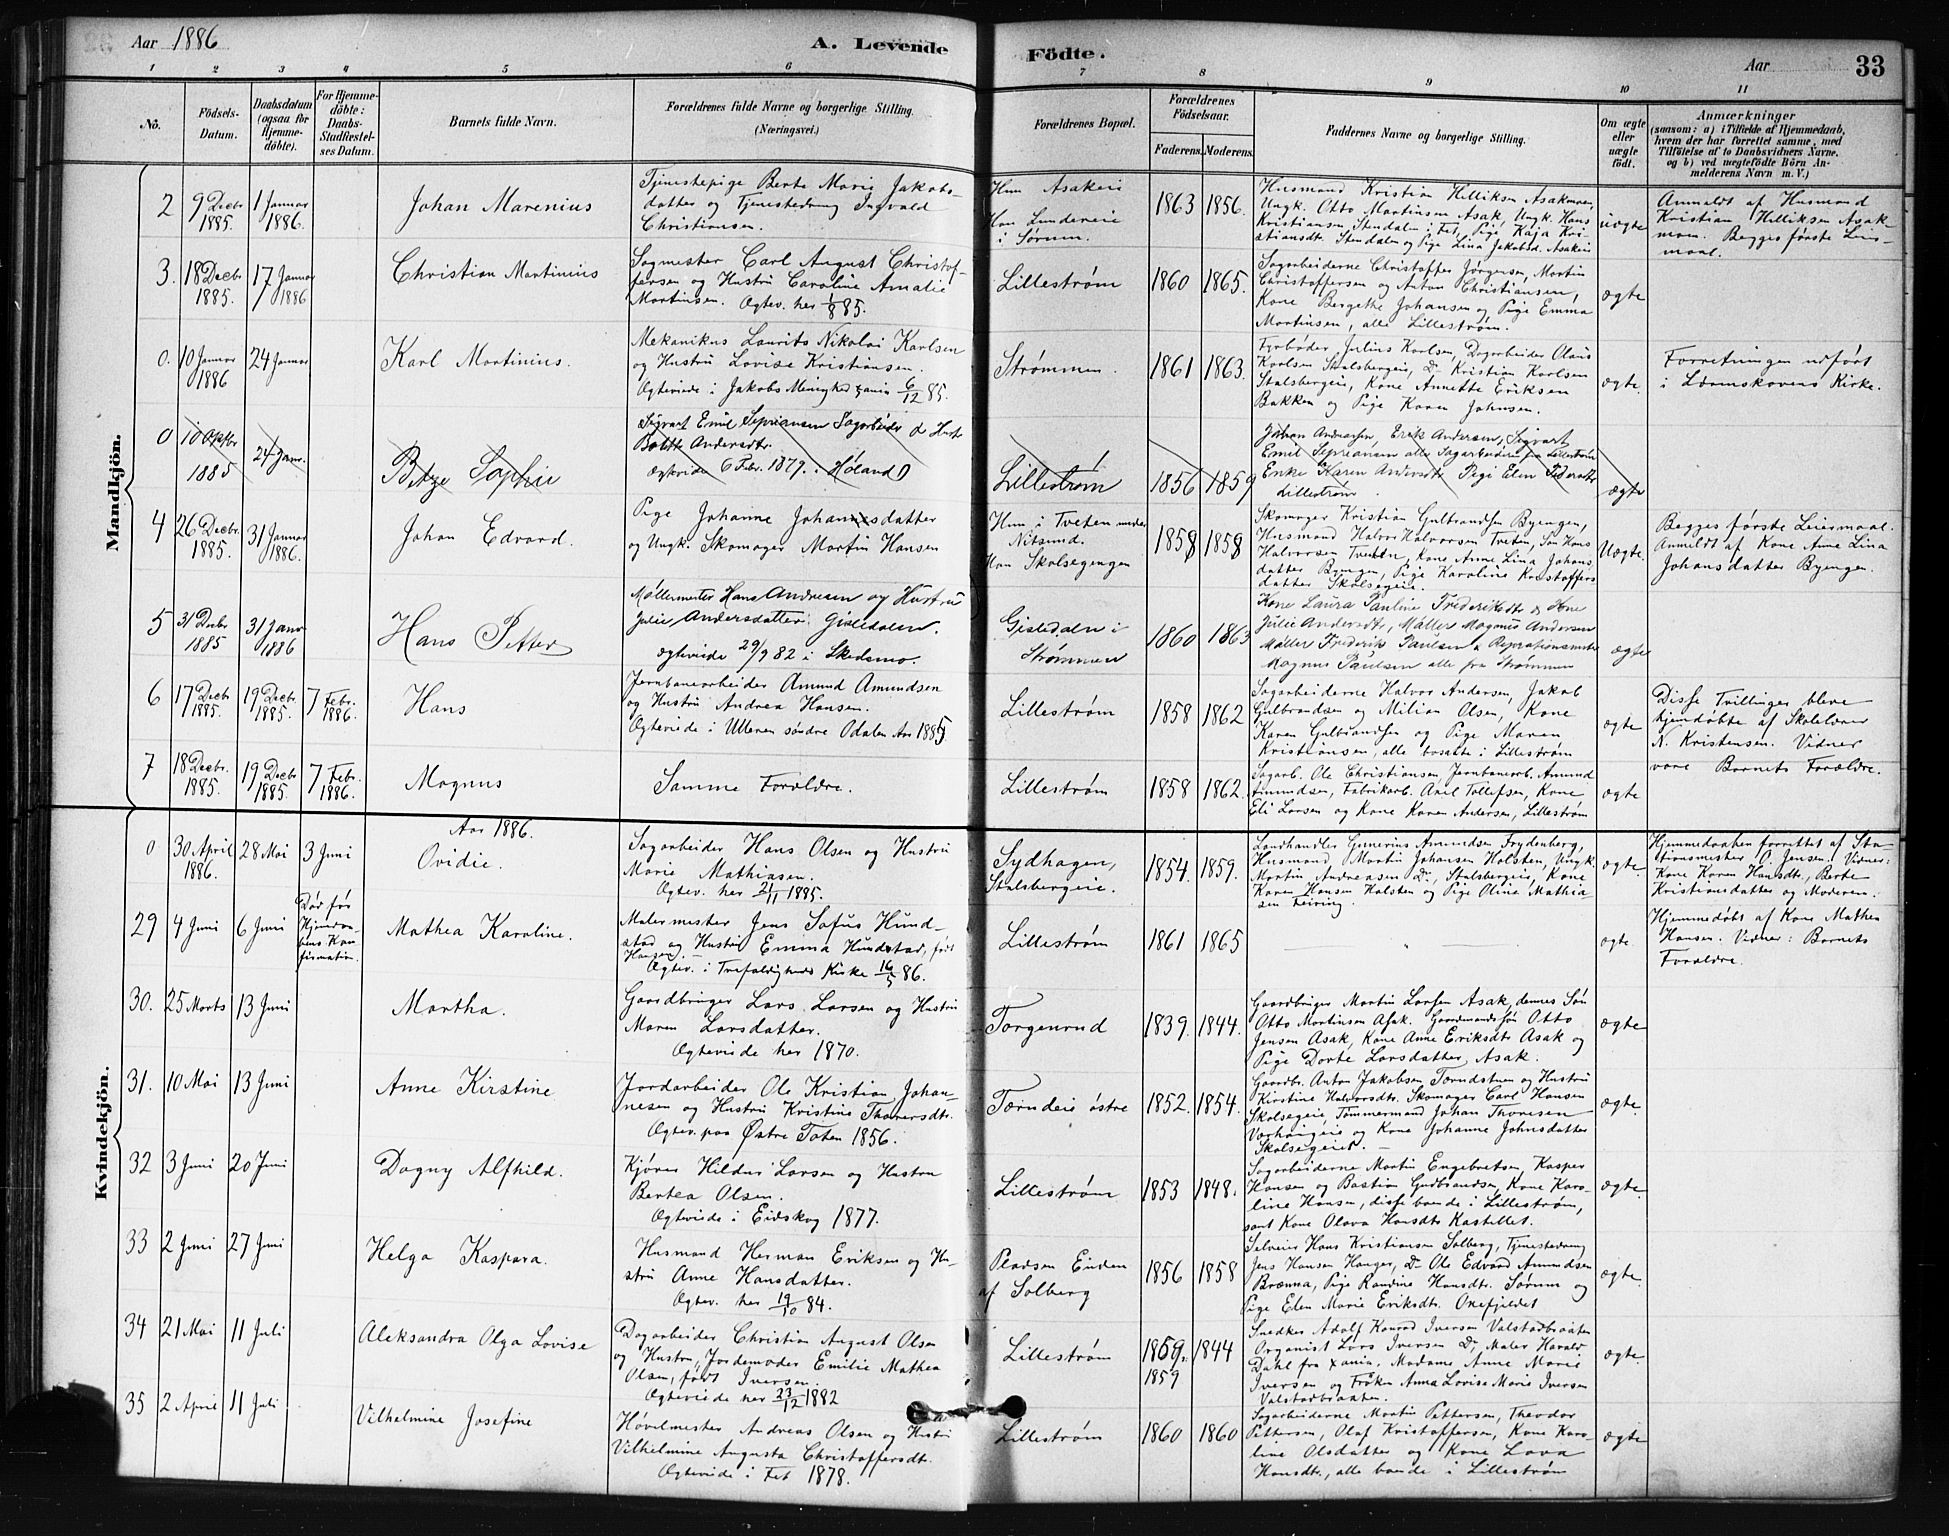 Aar 1886 A. Levende Födte. Aar 33
1 2 3 4 5 6 7 8 9 10 11
No.
Födsels-
Datum.
Daabsdatum
(ogsaa for
Hjemme-
döbte).
For Hjemme-
döbte:
Daabs-
Stadfæstel-
ses Datum.
Barnets fulde Navn.
Forældrenes fulde Navne og borgerlige Stilling.
(Næringsvei.)
Forældrenes Bopæl.
Forældrenes
Födselsaar.
Faderens. Moderens.
Faddernes Navne og borgerlige Stilling.
Om ægte
eller
uægte
födt.
Anmærkninger
(saasom: a) i Tilfælde af Hjemmedaab,
hvem der har forrettet samme, med
Tilföielse af to Daabsvidners Navne,
og b) ved uægtefödte Börn An-
melderens Navn m. V.)
Mandkjön.
2
9 Decbr
1885.
1 Januar
1886.
Johan Marenius
Tjenestepige Berte Marie Jakobs-
datter og Tjenestedreng Ingvald
Christiansen.
Hun Asakeie
Han Lundereie
i Sørum.
1863 1856.
Husmand Kristian Helliksen Asakmoen,
Ungk. Otto Martinsen Asak, Ungk. Hans
Kristiansen, Stendalen i Fet, Pige Kaja Kri-
stiansdt. Stendalen og Pige Lina Jakobsd. Asakeie
uægte
Anmeldt af Husmand
Kristian Helliksen Asak-
moen. Begges første Leier-
maal.
3.
18 Decbr
1885.
17 Januar
1886
Christian Martinius
Sagmester Carl August Christof-
fersen og Hustru Caroline Amalie
Martinsen. Ægtev. her 1/8 85.
Lillestrøm
1860 1865.
Sagarbeiderne Christoffer Jørgensen, Martin
Christoffersen og Anton Christiansen,
Kone Bergethe Johansen og Pige Emma
Martinsen, alle Lillestrøm.
ægte
0.
10 Januar
1886
24 Januar
Karl Martinius.
Mekanikus Laurits Nikolai Karlsen
og Hustru Lovise Kristiansen.
Ægteviede i Jakobs Menighed Xania 6/12 85.
Strømmen.
1861 1863.
Fyrbøder Julius Karlsen, Dagarbeider Olaus
Karlsen Stalsbergeie, Do Kristian Karlsen
Stalsbergeie, Kone Annette Eriksen
Bakken og Pige Karen Johnsen.
ægte.
Forretningen udført
i Lørenskovens Kirke.
0
10 Oktbr
1885
24 Janr.
Betze Sophie
Sigvart Emil Seprianson Sagarbeider & Hustr
Bolette Andersdtr.
Ægteviede 6 Febr. 1879. i Høland
Lillestrøm
1856 1859
Johan Andreassen, Erik Andersen, Sigvart
Emil Seprianson alle Sagarbeidere fra Lillestrøm
Enke Karen Andersdtr Pige Elen Pedersdtr
Lillestrøm.
ægte
4
26 Decbr
1885.
31 Januar
1886.
Johan Edvard.
Pige Johanne Johannesdatter
og Ungk. Skomager Martin Hansen
Hun i Tveten under
Nitsund.
Han Skolsegengen
1858 1858
Skomager Kristian Gulbrandsen Byengen,
Husmand Halvor Halvorsen Tveten, Søn Hans
Halvorsen Tveten, Kone Anne Lina Johans
datter Byengen, Pige Karoline Kristoffers
datter Skolsegeie.
Uægte.
Begges første Leiermaal.
Anmeldt af Kone Anne Lina
Johansdatter Byengen.
5
31 Decbr
1885
31 Janr
1886
Hans Petter
Møllermester Hans Andresen og Hustru
Julie Andersdatter Gisledalen.
Ægteviede 29/9 82 i Skedsmo.
Gisledalen i
Strømmen
1860 1863
Kone Laura Pauline Frederiksdt & Kone
Julie Andersdt, Møller Magnus Andersen
Møller Frederik Paulsen & Reprationsmester
Magnus Paulsen alle fra Strømmen
ægte
6
17 Decbr
1885.
19 Decbr
1885.
7 Febr.
1886.
Hans
Jernbanearbeider Amund Amundsen
og Hustru Andrea Hansen.
Ægteviede i Ulleren søndre Odalen Aar 1885
Lillestrøm
1858 1862
Sagarbeiderne Halvor Andersen, Jakob
Gulbrandsen og Milian Olsen, Kone
Karen Gulbrandsen og Pige Maren
Kristiansen, alle bosatte i Lillestrøm
ægte
Disse Tvillinger bleve
hjemdøbte af Skolelærer
N. Kristensen. Vidner
vare Barnets Forældre.
7
18 Decbr.
1885.
19 Decbr
1885.
7 Febr.
1886.
Magnus
Samme Forældre.
Lillestrøm
1858 1862.
Sagarb. Ole Christiansen, Jernbanearb. Amund
Amundsen, Fabrikarb. Axel Tollefsen, Kone
Eli Larsen og Kone Karen Andersen, Lillestrøm
ægte
Kvindekjön.
Aar 1886.
0
30 April
1886.
28 Mai
3 Juni
Ovidie.
Sagarbeider Hans Olsen og Hustru
Marie Mathiasen.
Ægtev. her 21/11 1885.
Sydhagen,
Stalsbergeie.
1854. 1859.
Landhandler Gunerius Amundsen Frydenberg,
Husmand Martin Johansen Holsten, Ungk.
Martin Andreasen Do, Stalsbergeie, Kone
Karen Hansen Holsten og Pige Oline Mathia-
sen Feiring.
ægte
Hjemmedaaben forrettet af Sta-
tionsmester O. Jensen. Vidner:
Kone Karen Hansdt., Berte
Kristiansdatter og Moderen.
29
4 Juni
6 Juni
Død før
Hjemdaa-
bens Kon
firmation.
Mathea Karoline.
Malermester Jens Sofus Hund-
stad og Hustru Emma Hundstad, født
Hansen.
Ægtev. i Trefoldigheds Kirke 16/5 86.
Lillestrøm
1861 1865
ægte
Hjemmedøbt af Kone Mathea
Hansen. Vidner: Barnets
Forældre.
30.
25 Marts
13 Juni
Martha.
Gaardbruger Lars Larsen og Hustru
Maren Larsdatter.
Ægteviede her 1870.
Torgenrud
1839. 1844.
Gaardbruger Martin Larsen Asak, dennes Søn
Otto Martinsen Asak. Gaardmandssøn Otto
Jensen Asak, Kone Anne Eriksdt. Asak og
Pige Dorte Larsdatter, Asak.
ægte
31.
10 Mai
13 Juni
Anne Kirstine
Jordarbeider Ole Kristian Johan-
nesen og Hustru Kristine Thorersdt.
Ægtev. paa Østre Toten 1856.
Tærndeie østre
1852. 1854.
Gaardbr. Anton Jakobsen Tærndstuen og Hustru
Kirstine Halvorsdt. Skomager Carl Hansen
Skolsegeie, Tømmermand Johan Thoresen
Vorhaugeie og Kone Johanne Johnsdatter
Skolsegeiet.
ægte.
32
3 Juni
20 Juni
Dagny Alfhild.
Kjører Hildus Larsen og Hustru
Bertea Olsen.
Ægteviede i Eidskog 1877.
Lillestrøm
1853 1848.
Sagarbeiderne Martin Engebretsen, Kasper
Hansen og Bastian Gudbrandsen, Kone Karo-
line Hansen, disse boende i Lillestrøm,
samt Kone Olava Hansdt. Kastellet.
ægte.
33
2 Juni
27 Juni
Helga Kaspara.
Husmand Herman Eriksen og Hu-
stru Anne Hansdatter.
Ægtev. her 19/10 84.
Pladsen Enden
af Solberg
1856 1858
Selveier Hans Kristiansen Solberg, Tjenestedreng
Jens Hansen Hauger, Do Ole Edvard Amundsen
Brænna, Pige Randine Hansdt. Sørum og
Pige Elen Marie Eriksdt. Oxefjeldet
ægte.
34
21 Mai
11 Juli
Aleksandra Olga Lovise
Dagarbeider Christian August Olsen
og Hustru, Jordemoder Emilie Mathea
Olsen, født Iversen.
Ægteviede her 23/12 1882
Lillestrøm
1859. 1844
1859
Snedker Adolf Konrad Iversen Valstadbraaten
Organist Lars Iversen Do, Maler Harald
Dahl fra Xania. Madame Anne Marie
Iversen og Frøken Anna Lovise Marie Iversen
Valstadbraaten.
ægte.
35
2 April
11 Juli
Vilhelmine Josefine
Høvelmester Andreas Olsen og Hustru
Vilhelmine Augusta Christoffersdt.
Ægteviede i Fet 1878.
Lillestrøm
1860 1860
Sagarbeiderne Martin Pettersen, Theodor
Pettersen, Olaf Kristoffersen, Kone Karo-
line Olsdatter og Kone Lova
Hansdt., alle boende i Lillestrøm
ægte